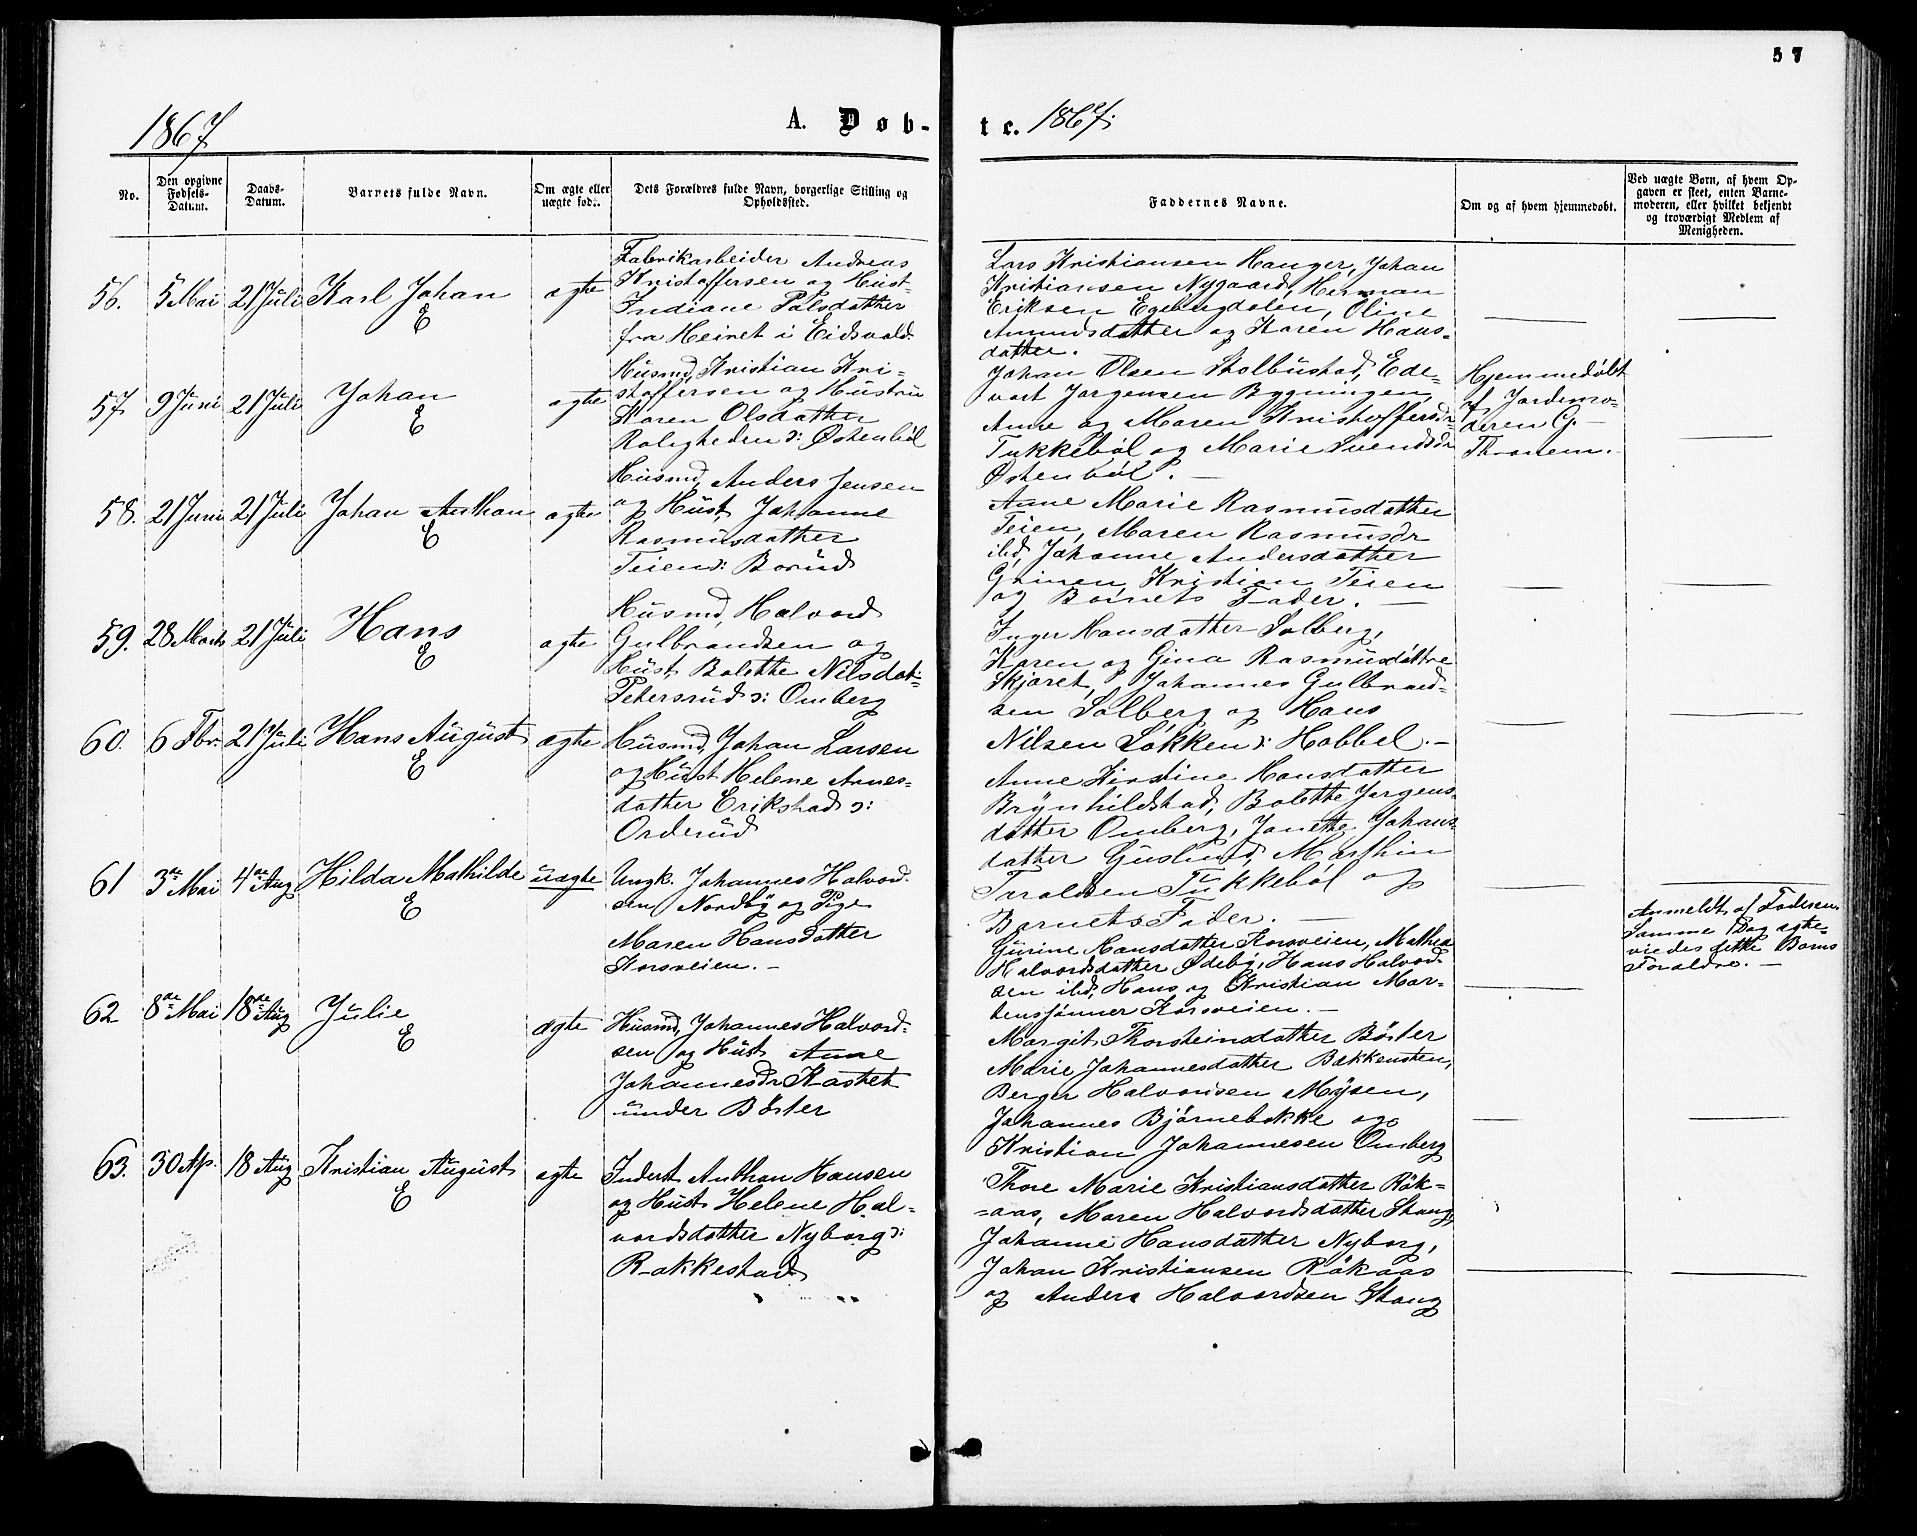 57
1867
A. Døb-
te. 1867.
No.
Den opgivne Fødsels-Datum.
Daabs-Datum.
Barnets fulde Navn.
Om ægte eller uægte født.
Dets Forældres fulde Navn, borgerlige Stilling og Opholdssted.
Faddernes Navne.
Om og af hvem hjemmedøbt.
Ved uægte Børn, af hvem Opgaven er skeet, enten Barnemoderen, eller hvilket bekjendt og troværdigt Medlem af Menigheden.
56. 5 Mai 21 Juli Karl Johan ægte
E
Fabrikarbeider Andreas
Kristoffersen og Hust.
Indiane Palsdatter
fra Heinet i Eidsvold.
Lars Kristiansen Hanger, Johan
Kristiansen Nygaard, Herman
Eriksen Egebergdalen, Oline
Amundsdatter og Karen Hans-
datter.
57. 9 Juni 21 Juli Johan ægte
E
Husmd, Kristian Kri-
stoffersen og Hustru
Karen Olsdatter
Roligheden ɔ: Østenbøl
Johan Olsen Stolbustad, Ede-
vart Jørgensen Bygningen,
Anne og Maren Kristoffersdr
Tukkebøl og Marie Svendsdr
Østenbøl. —
Hjemmedøbt
af Jordemo-
deren G.
Thronem.
58. 21 Juni 21 Juli Johan Anthon ægte
E
Husmd, Anders Jensen
og Hust, Johanne
Rasmusdatter
Teien ɔ: Borud
Anne Marie Rasmusdatter
Teien, Maren Rasmusdr
ibd, Johanne Andersdatter
Grinen, Kristian Teien
og Barnets Fader. —
59. 28 Marts 21 Juli Hans ægte
E
Husmd, Halvord
Gulbrandsen og
Hust, Bolette Nilsdat-
Petersrud ɔ: Omberg
Inger Hansdatter Solberg,
Karen og Gina Rasmusdøttre
Skjæret, Johannes Gulbrand-
sen Solberg og Hans
Nilsen Løkken ɔ: Hobbel. —
60. 6 Fbr. 21 Juli Hans August ægte
E
Husmd, Johan Larsen
og Hust Helene Arnes-
datter Erikstad ɔ:
Orderud
Anne Kirstine Hansdatter
Brynhildstad, Bolette Jørgens-
datter Omberg, Janette Johans-
datter Gjuslund, Marthin
Toraldsen Tukkebøl og
Barnets Fader. —
61 3de Mai 4de Aug Hilda Mathilde uægte
E
Ungk. Johannes Halvord-
sen Nordby og Pige
Maren Hansdatter
Korsveien. —
Gurine Hansdatter Korsveien, Mathea
Halvordsdatter Ødeby, Hans Halvord-
sen ibd, Hans og Kristian Mar-
tenssønner Korsveien. —
Anmeldt af Faderen.
Samme Dag ægte-
viedes dette Barns
Forældre. —
62 8de Mai 18de Aug Julie ægte
E
Husmd, Johannes Halvord-
sen og Hust Anne
Johannesdr Kastet
under Böster
Margit Thorsteinsdatter Böster
Marie Johannesdatter Bækkensten,
Berger Halvorsen Mysen,
Johannes Bjørnebekke og
Kristian Johannesen Omberg
63. 30 Ap. 18 Aug Kristian August ægte
E
Inderst Anthon Hansen
og Hust Helene Hal-
vordsdatter Nyborg ɔ:
Rakkestad
Thore Marie Kristiansdatter Røk-
aas, Maren Halvordsdatter Skaug,
Johanne Hansdatter Nyborg,
Johan Kristiansen Røkaas
og Anders Halvordsen Skaug